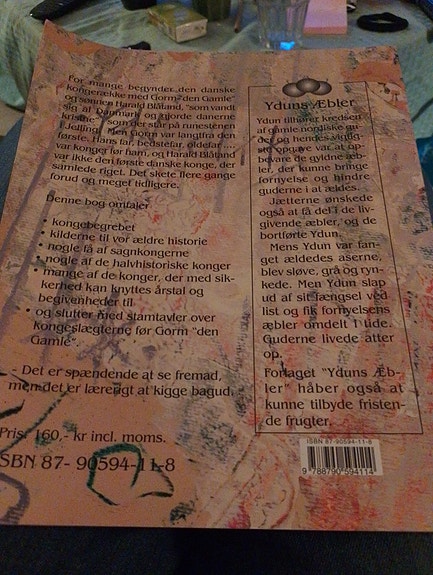 For mange begynder den danske
kongerække med Gorm "den Gamle"
og sønnen Harald Blåtand, "som vandt
sig al Danmark og gjorde danerne
kristne", som der står på runestenen
i Jelling. Men Gorm var langtfra den
første. Hans far, bedstefar, oldefar ....
var konger før ham, og Harald Blåtand
var ikke den første danske konge, der
samlede riget. Det skete flere gange
forud og meget tidligere.
Denne bog omtaler
• kongebegrebet
• kilderne til vor ældre historie
• nogle få af sagnkongerne
• nogle af de halvhistoriske konger
• mange af de konger, der med sik-
kerhed kan knyttes årstal og
begivenheder til
• og slutter med stamtavler over
kongeslægterne før Gorm "den
Gamle".
- Det er spændende at se fremad,
men det er lærerigt at kigge bagud.
Pris: 160,- kr incl. moms.
ISBN 87- 90594-11-8
Yduns Æbler
Ydun tilhører kredsen
af gamle nordiske gu-
der og hendes vigtig-
ste opgave var at op-
bevare de gyldne æb-
ler, der kunne bringe
fornyelse og hindre
guderne i at ældes.
Jætterne ønskede
også at få del i de liv-
givende æbler, og de
bortførte Ydun.
Mens Ydun var fan-
get ældedes aserne,
blev sløve, grå og ryn-
kede. Men Ydun slap
ud af sit fængsel ved
list og fik fornyelsens
æbler omdelt i tide.
Guderne livede atter
op.
Forlaget "Yduns Æb-
ler" håber også at
kunne tilbyde fristen-
de frugter.
ISBN 87-90594-11-8
9 788790 594114